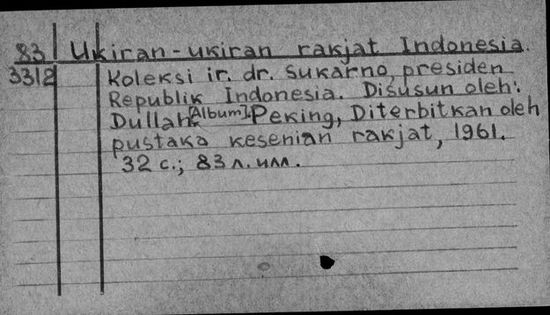 83 Ukiran-ukiran rakjat Indonesia.
3312 Koleksi ir. dr. Sukarno, presiden
Republik Indonesia. Disusun oleh:
Dullah [Album]. Peking, Diterbitkan oleh
pustaka kesenian rakjat, 1961.
32 с.; 83 л. илл.